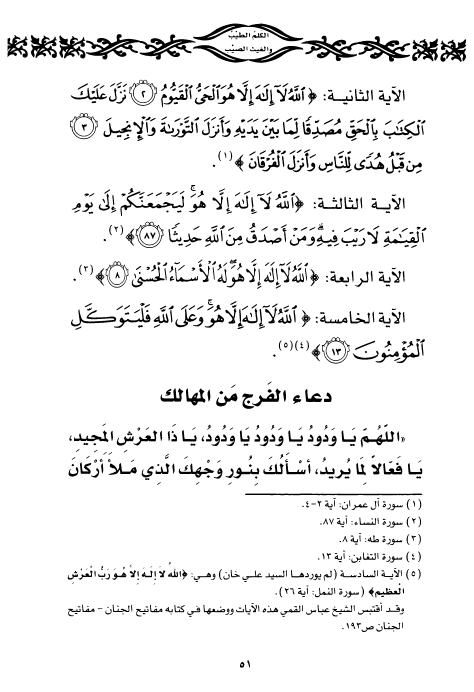 الكلم الطيّب
والغيث الصيّب
الآية الثانية: ﴿ ٱللَّهُ لَآ إِلَٰهَ إِلَّا هُوَ ٱلْحَىُّ ٱلْقَيُّومُ ۝٢ نَزَّلَ عَلَيْكَ
ٱلْكِتَٰبَ بِٱلْحَقِّ مُصَدِّقًا لِّمَا بَيْنَ يَدَيْهِ وَأَنزَلَ ٱلتَّوْرَىٰةَ وَٱلْإِنجِيلَ ۝٣
مِن قَبْلُ هُدًى لِّلنَّاسِ وَأَنزَلَ ٱلْفُرْقَانَ ﴾(١).
الآية الثالثة: ﴿ٱللَّهُ لَآ إِلَٰهَ إِلَّا هُوَ ۚ لَيَجْمَعَنَّكُمْ إِلَىٰ يَوْمِ
ٱلْقِيَٰمَةِ لَا رَيْبَ فِيهِ ۗ وَمَنْ أَصْدَقُ مِنَ ٱللَّهِ حَدِيثًا ۝٨٧﴾(٢).
الآية الرابعة: ﴿ٱللَّهُ لَآ إِلَٰهَ إِلَّا هُوَ ۖ لَهُ ٱلْأَسْمَآءُ ٱلْحُسْنَىٰ ۝٨﴾(٣).
الآية الخامسة: ﴿ ٱللَّهُ لَآ إِلَٰهَ إِلَّا هُوَ ۚ وَعَلَى ٱللَّهِ فَلْيَتَوَكَّلِ
ٱلْمُؤْمِنُونَ ۝١٣﴾(٤)(٥).
دعاء الفَرج مَن المهالك
«اللَّهُمّ يَا وَدُودُ يَا وَدُودُ يَا وَدُودُ، يَا ذَا العَرْشِ المَجِيدِ،
يَا فَعّالاً لِمَا يُرِيدُ، أسْأَلُكَ بِنُورِ وَجْهِكَ الَّذِي مَلأَ أرْكَانَ
(١) سورة آل عمران: آية ٢-٤.
(٢) سورة النساء: آية ٨٧.
(٣) سورة طه: آية ٨.
(٤) سورة التغابن: آية ١٣.
(٥) الآية السادسة (لم يوردها السيد علي خان) وهي: ﴿الله لا إلَهَ إلاَّ هُوَ رَبُّ العَرْشِ
العظيم﴾ (سورة النمل: آية ٢٦).
وقد أقتبس الشيخ عباس القمي هذه الآيات ووضعها في كتابه مفاتيح الجنان - مفاتيح
الجنان ص١٩٣.
٥١